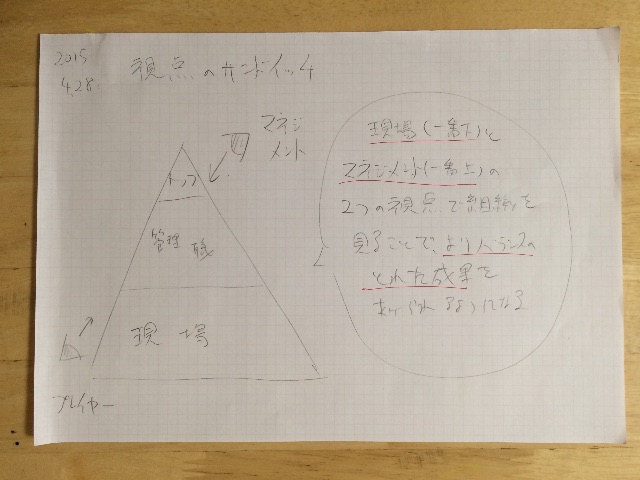 2015
4.28
視点のサンドイッチ
マネジ
メント
トップ
管理職
現場
プレイヤー
現場(一番下)と
マネジメント(一番上)の
2つの視点で組織を
見ることで、よりバランスの
とれた成果を
あげられるようになる